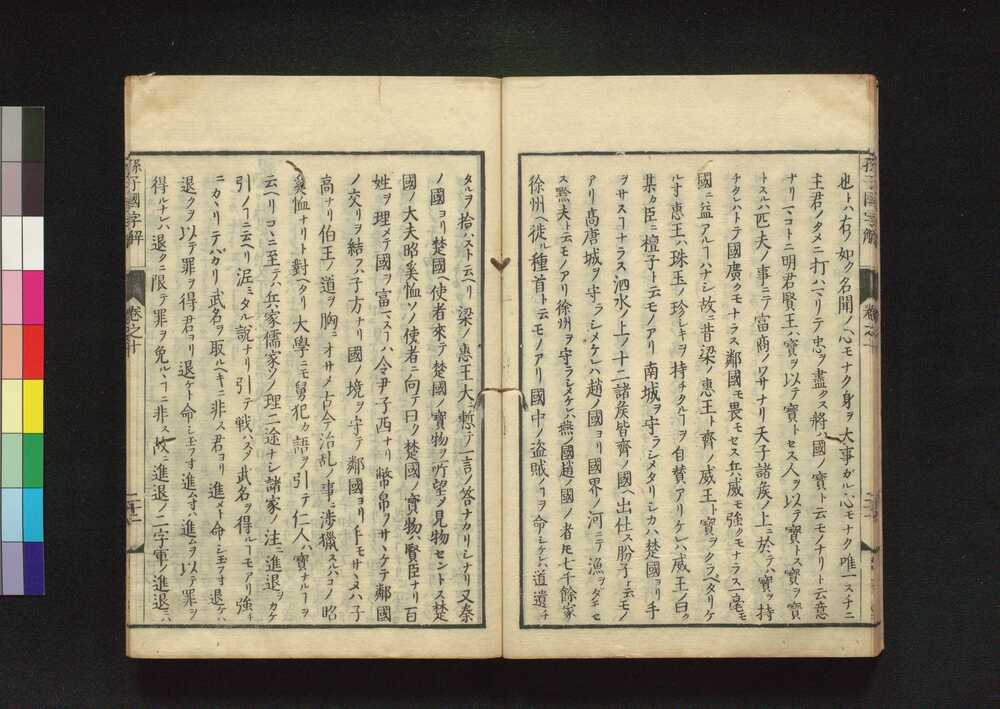 也トハ右ノ如ク名聞ノ心モナク身ヲ大事ガル心モナク唯一スチニ
主君ノタメニ打ハマリテ忠ヲ盡クス將ハ國ノ寶ト云モノナリト云意
ナリマコトニ明君賢王ハ寶ヲ以テ寶トセス人ヲ以テ寶トス寶ヲ寶
トスルハ匹夫ノ事ニテ富商ノワサナリ天子諸矦ノ上ニ於テハ寶ヲ持
チタレハトテ國廣クモナラス鄰國モ畏モセス兵ノ威モ強クモナラス一毫モ
國ニ益アルヿハナシ故ニ昔梁ノ惠王ト齊ノ威王ト寶ヲクラベタリケ
ル寸惠王ハ珠玉ノ珍シキヲ持チタルヿヲ自賛アリケレハ威王ノ曰ク
某カ臣ニ檀子ト云モノアリ南城ヲ守ラシメタリシカハ楚國ヨリ手
ヲサスヿナラス泗水ノ上ノ十二諸矦皆齊ノ國ヘ出仕ス肦子ト云モノ
アリ高唐城ヲ守ラシメケレハ趙ノ國ヨリ國界ノ河ニテ漁ヲダモセ
ス黔夫ト云モノアリ徐州ヲ守ラシメケレハ燕ノ國趙ノ國ノ者𪜈七千餘家
徐州ヘ徙ル種首ト云モノアリ國中ノ盗賊ノヿヲ命シケレハ道遺チ
孫子國字解
卷之十
タルヲ拾ハスト云ヘリ梁ノ惠王大ニ慙テ一言ノ答ナカリシナリ又秦
ノ國ヨリ楚國ヘ使者來テ楚國ノ寶物ヲ所望ノ見物セントス楚
國ノ大夫昭奚恤ソノ使者ニ向テ曰ク楚國ノ寶物ハ賢臣ナリ百
姓ヲ理メテ國ヲ富マスヿハ令尹子西ナリ幣帛ヲサヽケテ鄰國
ノ交リヲ結フハ子方ナリ國ノ境ヲ守テ鄰國ヨリ手モサヽヌハ子
高ナリ伯王ノ道ヲ胸ニオサメ古今治乱ノ事ニ渉獵スルハコノ昭
奚恤ナリト對ヘタリ大學ニモ舅犯カ語ヲ引テ仁人ハ寶ナルヿヲ
云ヘリコヽニ至テハ兵家儒家ソノ理二途ナシ諸家ノ注ニ進退ヲカケ
引ノヿニ云ヘリ泥ミタル説ナリ引テ戰ハスノ武名ヲ得ルヿモアリ強チ
ニカヽリテバカリ武名ヲ取ルヘキニ非ス君ヨリ進メト命シ玉フ寸退ケハ
退クヲ以テ罪ヲ得君ヨリ退ケト命シ玉フ寸進ム寸ハ進ムヲ以テ罪ヲ
得ルナレハ退クニ限テ罪ヲ免ルヽヿニ非ス故ニ進退ノ二字軍ノ進退ニハ
孫子國字解
卷之十